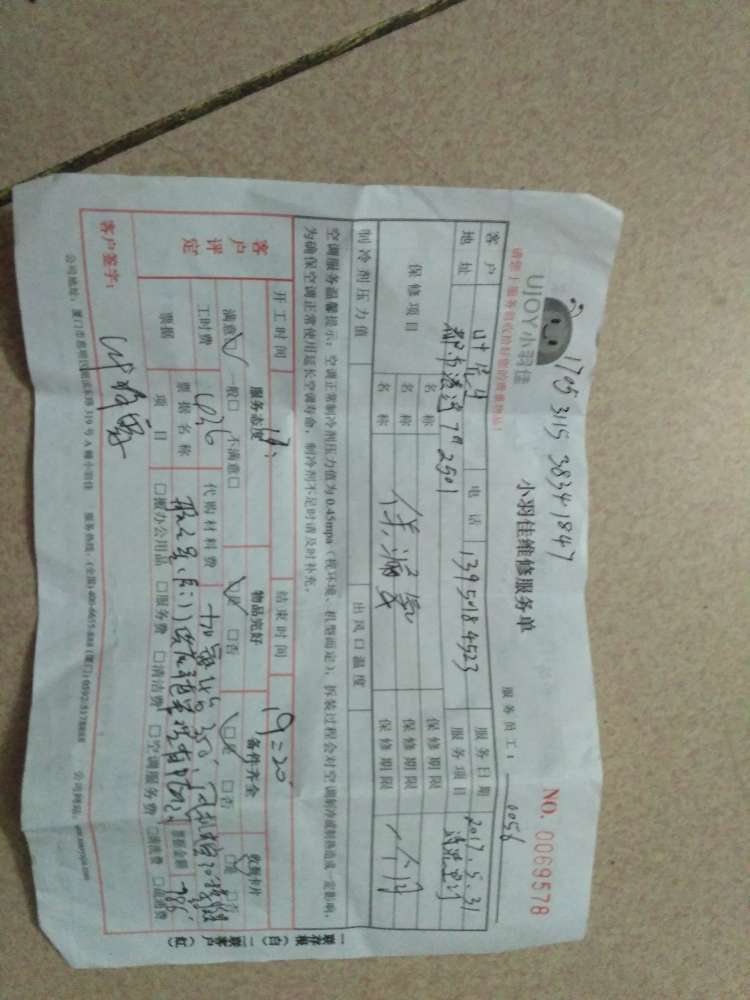 1705 3115 38341847
UJOY小羽佳
小羽佳维修服务单
NO. 0069578
请您于服务前收拾好您的贵重物品!
服务员工: 0056
客户 叶先生 电话 13950184523 服务日期 2017.5.31
地址 7# 2501 服务项目 清洗空调
保修项目 名称 保修期限
名称 保修期限
名称 保修期限 一个月
制冷剂压力值 出风口温度
空调服务温馨提示: 空调正常制冷剂压力值为0.45mpa (视环境、机型而定), 拆装过程会对空调制冷或制热造成一定影响,
为确保空调正常使用延长空调寿命, 制冷剂不足时请及时补充。
开工时间 结束时间 19:20
客户评定 服务态度 物品完好 备件齐全 收据卡片
满意□ 一般□ 不满意□ □是 □否 □是 □否 □是 □否
工时费 436 代购材料费 350
票据 票据名称 票据金额 786
项目 □搬办公用品 □服务费 □清洁费 □空调服务费
客户签字:
一联存根(白) 二联客户(红)
服务热线: (全国) 400-6655-888 (厦门) 0592-5178888 公司网站: